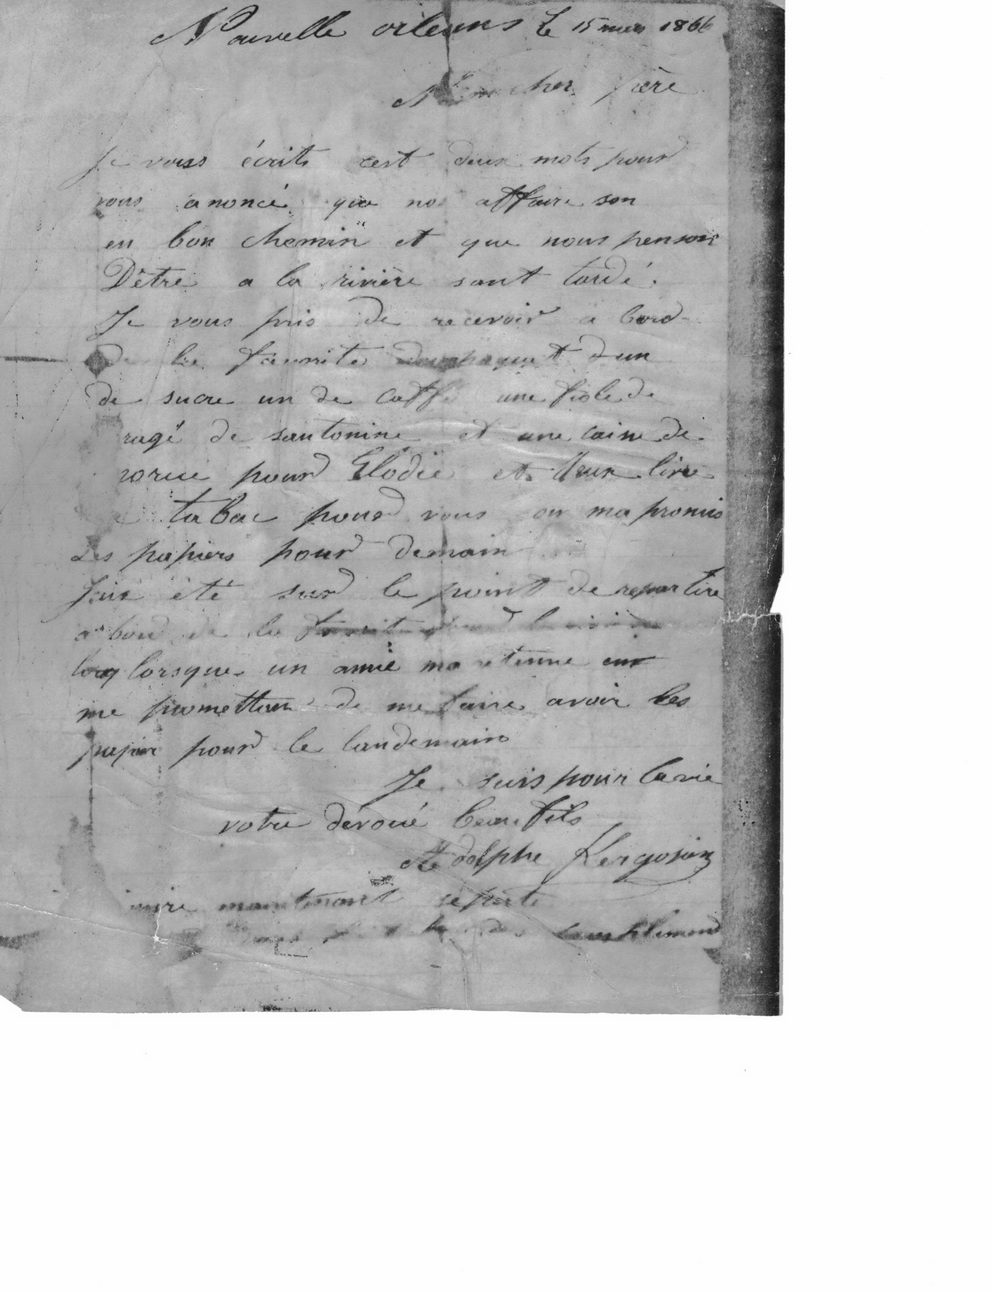 Nouvelle orleans le 15 mars 1866
Mon cher père
Je vous écrits cest deux mots pour
vous anoncé que nos affaire son
en bon chemin et que nous pensons
D'être a la rivière sant tardé.
Je vous pris de recevoir a bord
de la favorite deux paquet d'un
de sucre un de caffé une fiole de
ragé de santonine et une caine de
morue pour Elodie et deux livre
tabac pour vous on ma promis
Les papiers pour demain
jais été sur le point de repartire
a bord de la favorite
lorsque un amie ma retenue
me promettan de me faire avoir les
papier pour le landemain
Je suis pour la vie
votre dévoué beau fils
Adolphe Kergosien
maintenant
compliment